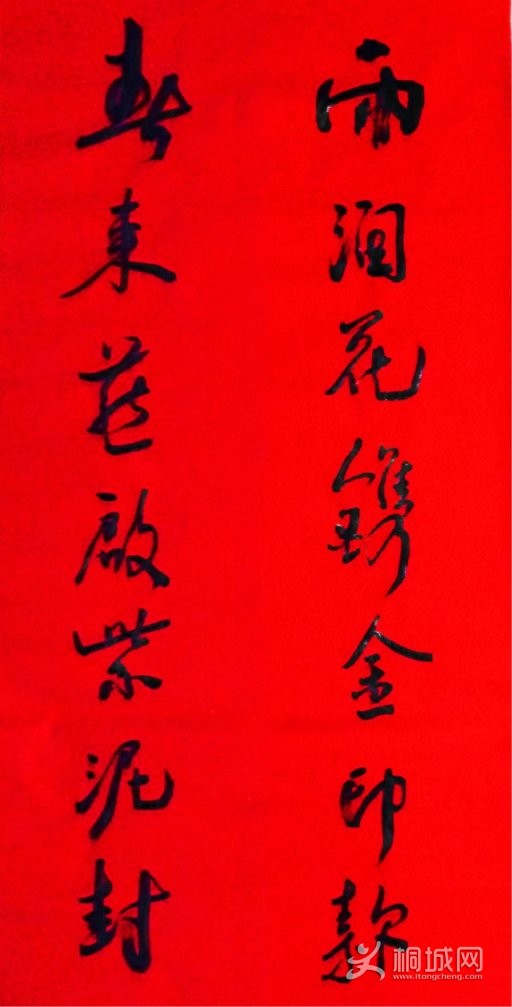 雨润花镌金印款
春来燕啟紫泥封
桐城网
www.itongcheng.com